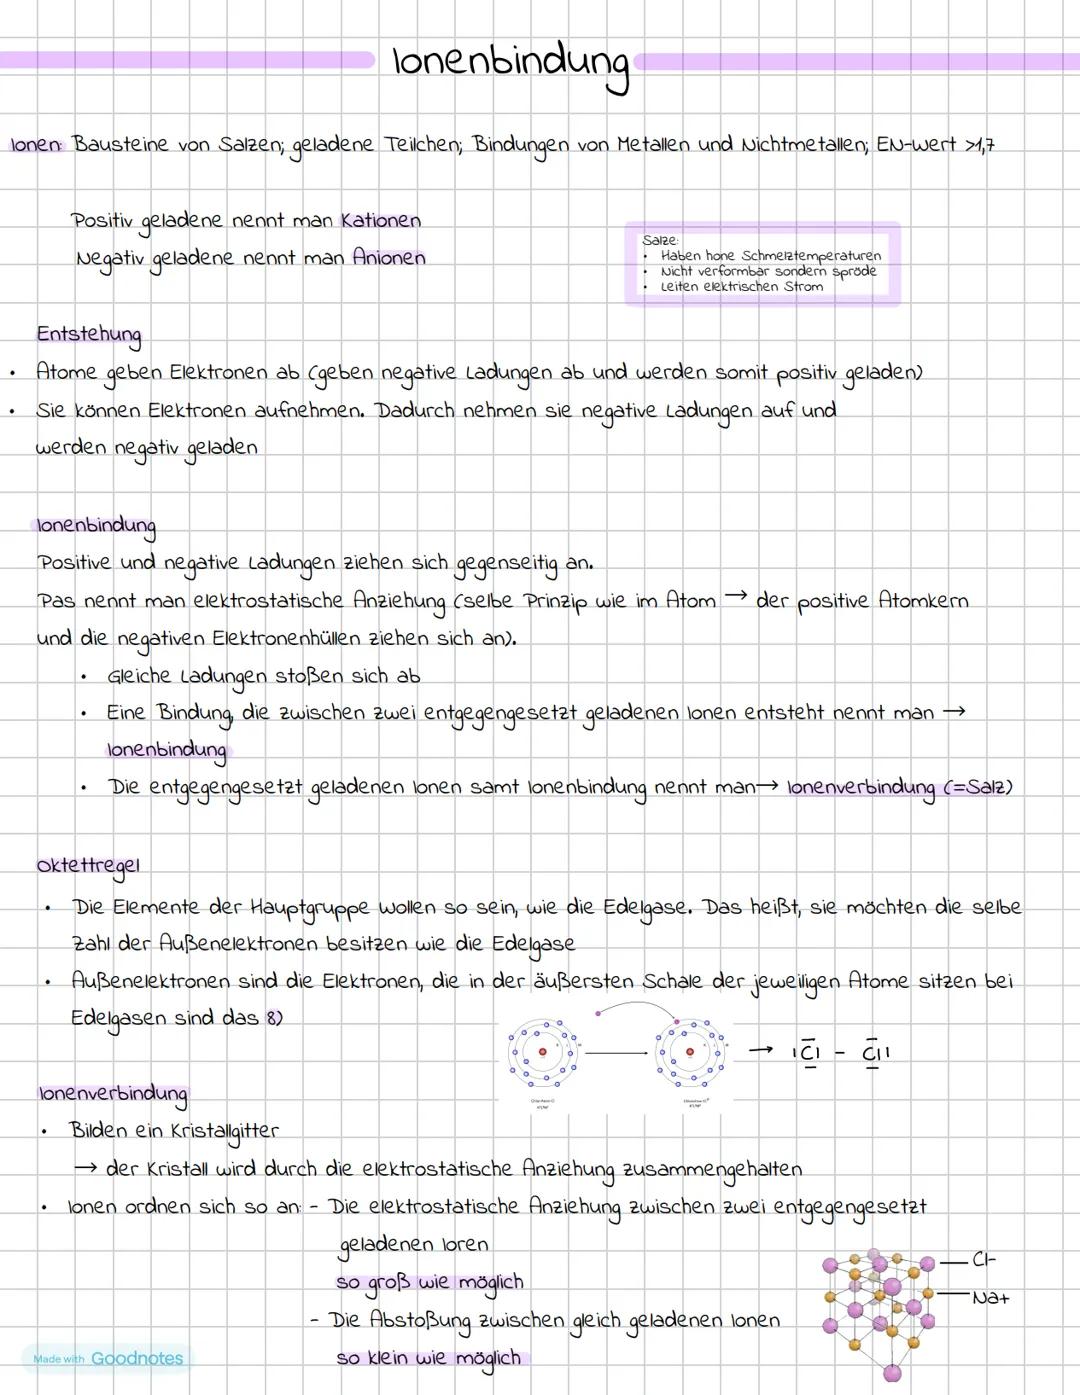 Ionenbindung
Ionen: Bausteine von Salzen; geladene Teilchen; Bindungen von Metallen und Nichtmetallen; EN-Wert >1,7
Positiv geladene nennt man Kationen
Negativ geladene nennt man Anionen
Salze:
• Haben hone Schmelztemperaturen
• Nicht verformbar sondern spröde
• Leiten elektrischen Strom
Entstehung
• Atome geben Elektronen ab (geben negative Ladungen ab und werden somit positiv geladen)
• Sie können Elektronen aufnehmen. Dadurch nehmen sie negative Ladungen auf und
werden negativ geladen
Ionenbindung
Positive und negative Ladungen ziehen sich gegenseitig an.
Pas nennt man elektrostatische Anziehung (selbe Prinzip wie im Atom → der positive Atomkern
und die negativen Elektronenhüllen ziehen sich an).
• Gleiche Ladungen stoßen sich ab
• Eine Bindung, die zwischen zwei entgegengesetzt geladenen Ionen entsteht nennt man →
Ionenbindung
• Die entgegengesetzt geladenen Ionen samt Ionenbindung nennt man→ Ionenverbindung (=Salz)
Oktettregel
• Die Elemente der Hauptgruppe wollen so sein, wie die Edelgase. Das heißt, sie möchten die selbe
Zahl der Außenelektronen besitzen wie die Edelgase
• Außenelektronen sind die Elektronen, die in der äußersten Schale der jeweiligen Atome sitzen bei
Edelgasen sind das 8)
→ |Cl - Cl|
Ionenverbindung
• Bilden ein Kristallgitter
→ der Kristall wird durch die elektrostatische Anziehung zusammengehalten
• Ionen ordnen sich so an: - Die elektrostatische Anziehung zwischen zwei entgegengesetzt
geladenen Ioren
so groß wie möglich
- Die Abstoßung zwischen gleich geladenen Ionen
so klein wie möglich
Cl-
Na+
Made with Goodnotes